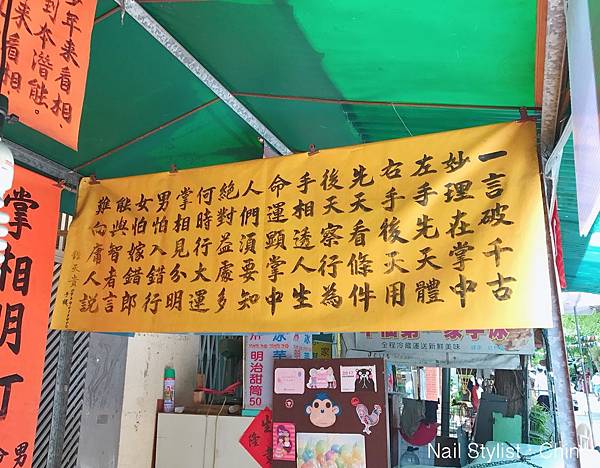 一言破千古
妙理在掌中
左手先天體
右手後天用
先天看條件
後天察行為
手相透人生
命運顯掌中
人們須要知
絕對益處多
何時行大運
掌相見分明
男怕入錯行
女怕嫁錯郎
能與智者言
難向庸人說
多年來看相,
到本潛能。
來看相
掌相明
明治甜筒50
全程冷藏運送新鮮美味
2017
Nail Stylist · Chin